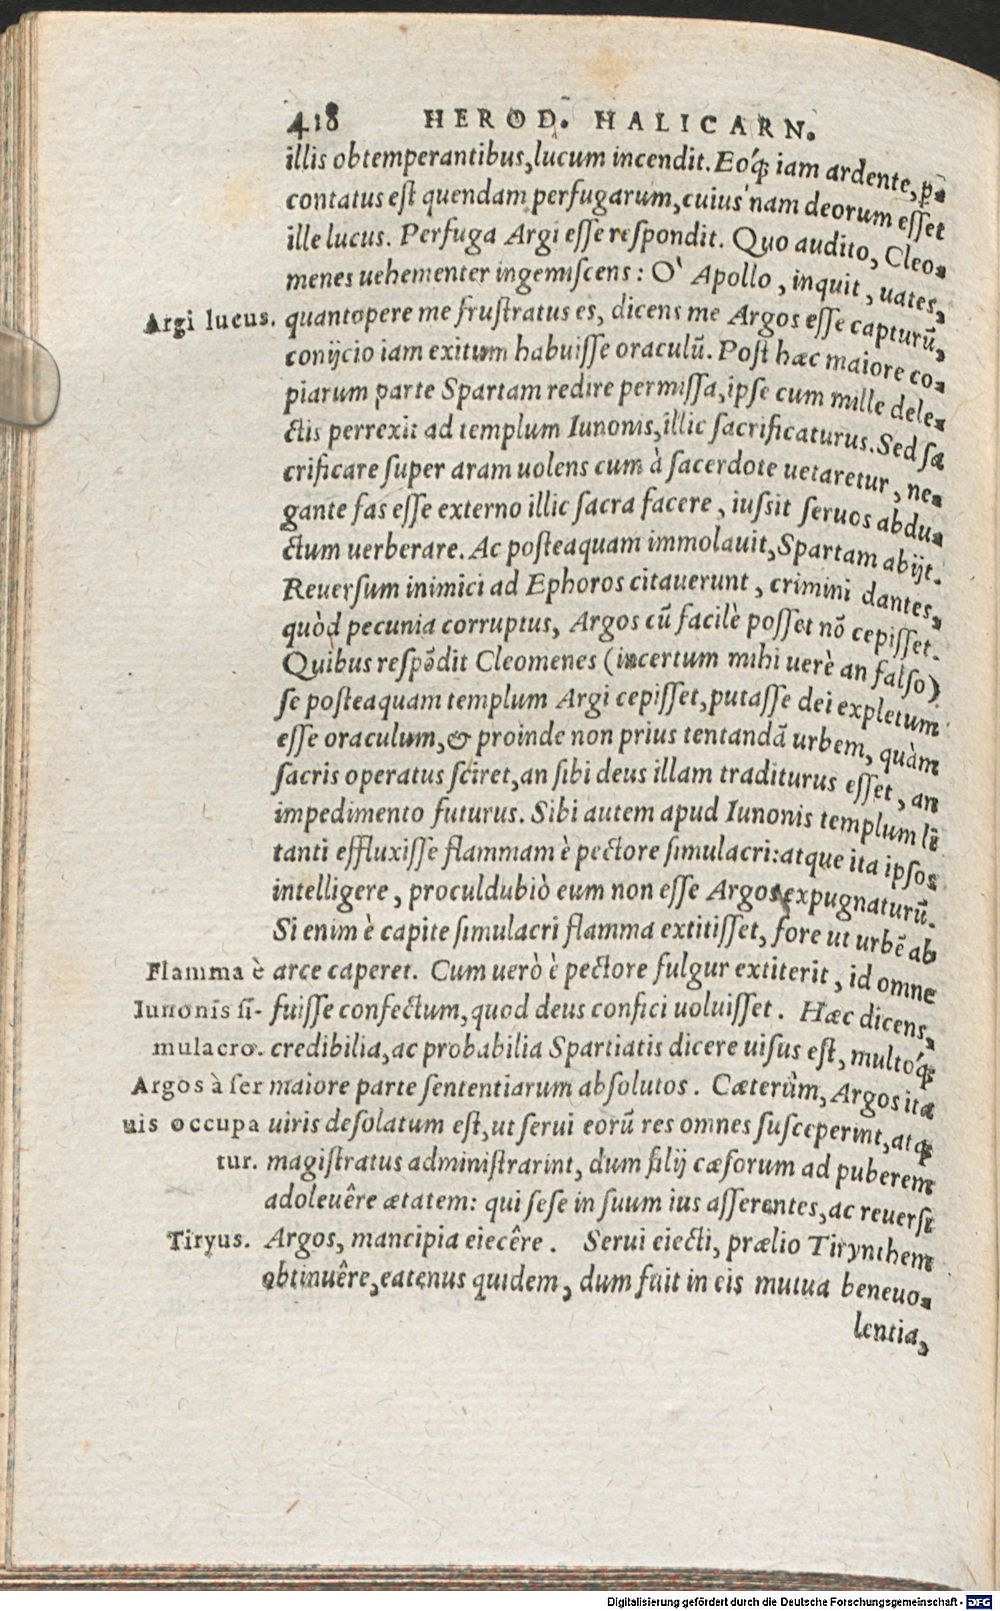 418 HEROD. HALICARN.
illis obtemperantibus, lucum incendit. Eoq́ꝫ iam ardente, ꝑ-
contatus est quendam perfugarum, cuius nam deorum esset
ille lucus. Perfuga Argi esse respondit. Quo audito, Cleo-
menes uehementer ingemiscens: O' Apollo, inquit, uates,
Argi lucus. quantopere me frustratus es, dicens me Argos esse capturū,
conijcio iam exitum habuisse oraculū. Post hæc maiore co-
piarum parte Spartam redire permissa, ipse cum mille dele-
ctis perrexit ad templum Iunonis, illic sacrificaturus. Sed sa
crificare super aram uolens cum à sacerdote uetaretur, ne-
gante fas esse externo illic sacra facere, iussit seruos abdu-
ctum uerberare. Ac posteaquam immolauit, Spartam abijt.
Reuersum inimici ad Ephoros citauerunt, crimini dantes,
quòd pecunia corruptus, Argos cū facilè posset nō cepisset.
Quibus respōdit Cleomenes (incertum mihi uerè an falso)
se posteaquam templum Argi cepisset, putasse dei expletum
esse oraculum, & proinde non prius tentandā urbem, quàm
sacris operatus sciret, an sibi deus illam traditurus esset, an
impedimento futurus. Sibi autem apud Iunonis templum li
tanti effluxisse flammam è pectore simulacri: atque ita ipsos
intelligere, proculdubiò eum non esse Argos expugnaturū.
Si enim è capite simulacri flamma extitisset, fore ut urbē ab
Flamma è arce caperet. Cum uerò è pectore fulgur extiterit, id omne
Iunonis si- fuisse confectum, quod deus confici uoluisset. Hæc dicens,
mulacro. credibilia, ac probabilia Spartiatis dicere uisus est, multoq́ꝫ
Argos à ser maiore parte sententiarum absolutos. Cæterûm, Argos ita
uis occupa uiris desolatum est, ut serui eorū res omnes susceperint, atqꝫ
tur. magistratus administrarint, dum filij cæsorum ad puberem
adoleuêre ætatem: qui sese in suum ius asserentes, ac reuersi
Tiryus. Argos, mancipia eiecêre. Serui eiecti, prælio Tirynthem
obtinuêre, eatenus quidem, dum fuit in eis mutua beneuo-
lentia,
Digitalisierung gefördert durch die Deutsche Forschungsgemeinschaft - DFG